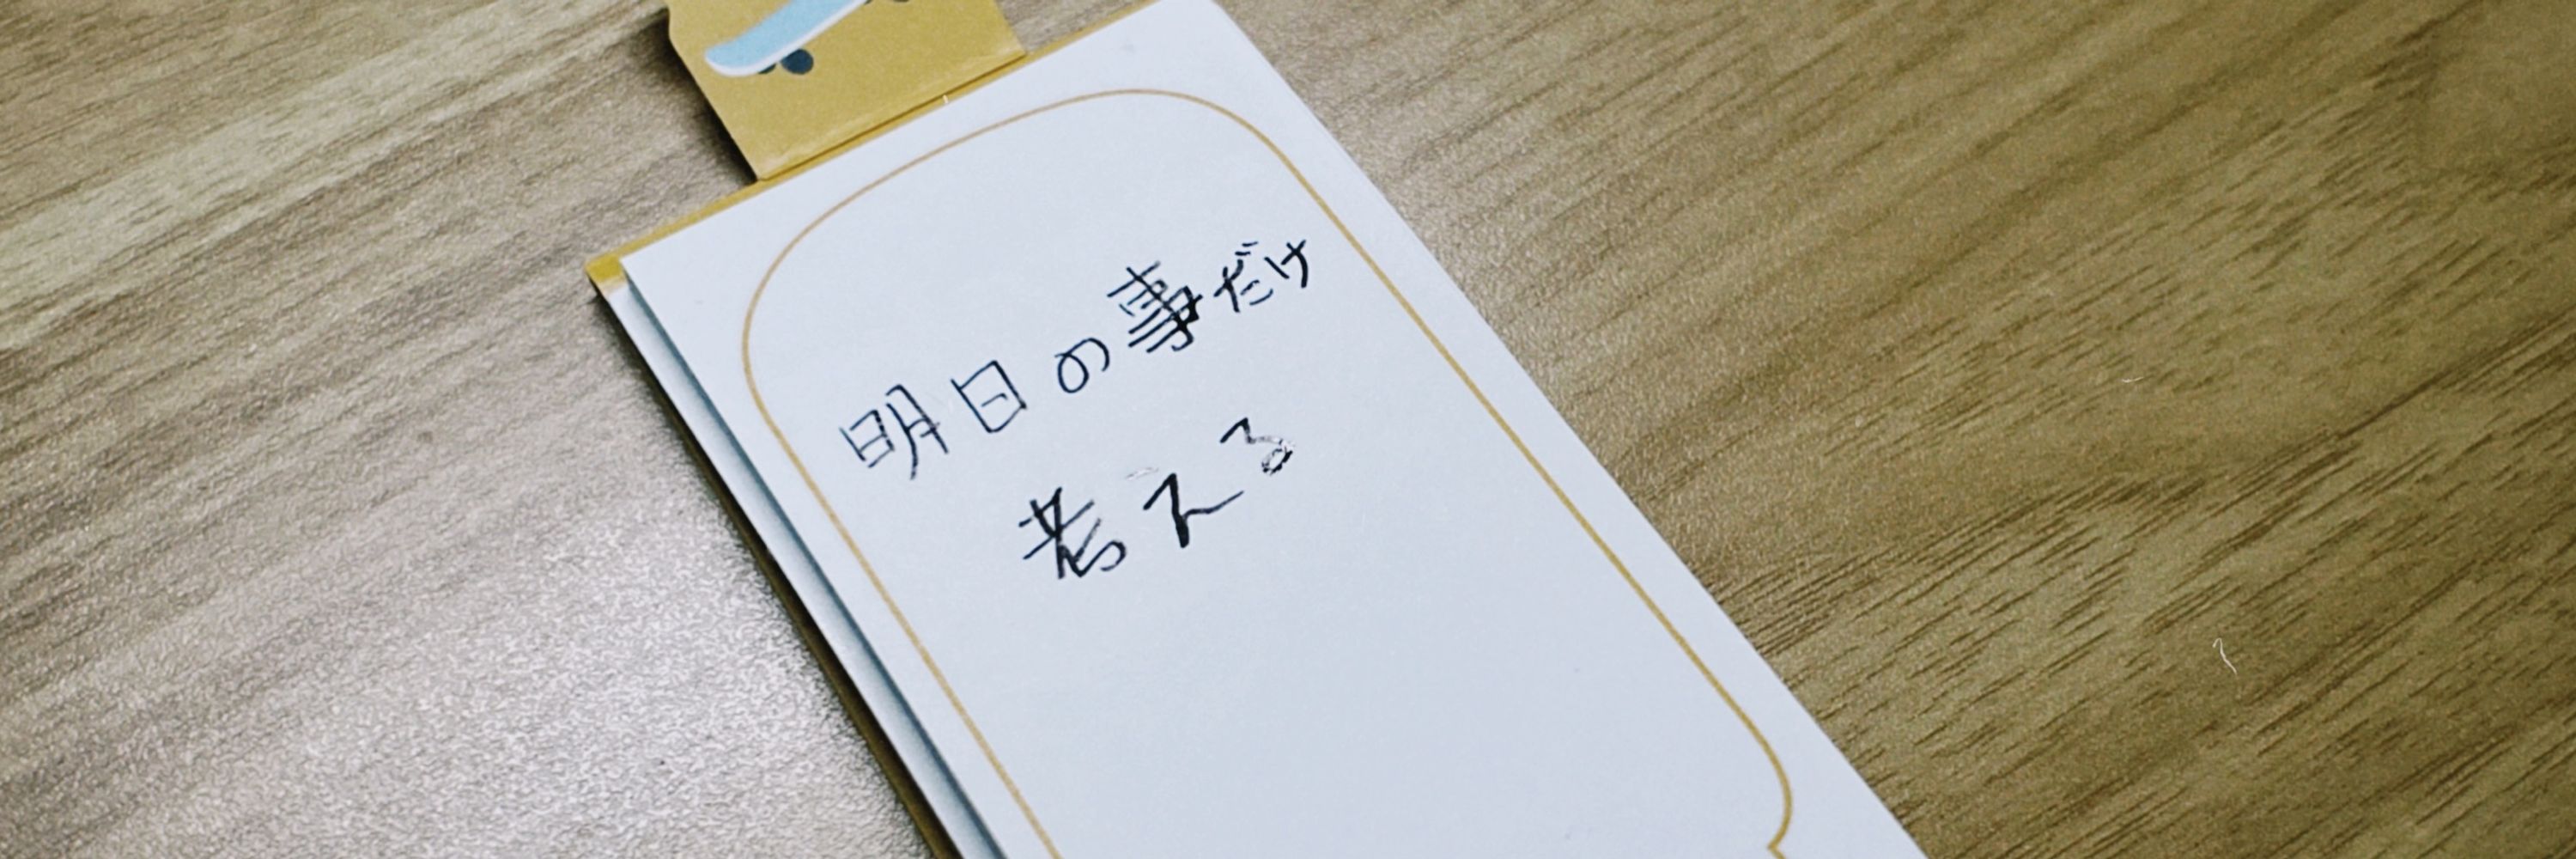 明日の事だけ
考える